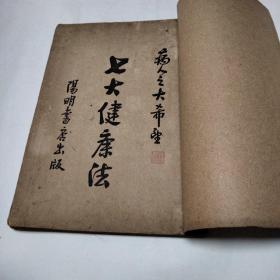 病人之大希望
七大健康法
陽明書店出版